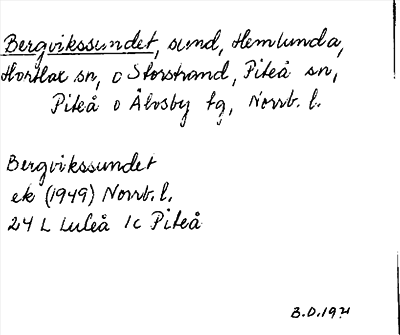 Bergvikssundet, sund, Hemlunda,
Hortlax sn, o Storstrand, Piteå sn,
Piteå o Älvsby tg, Norrb. l.
Bergvikssundet
ek (1949) Norrb. l.
24 L Luleå 1c Piteå
B.D.1971